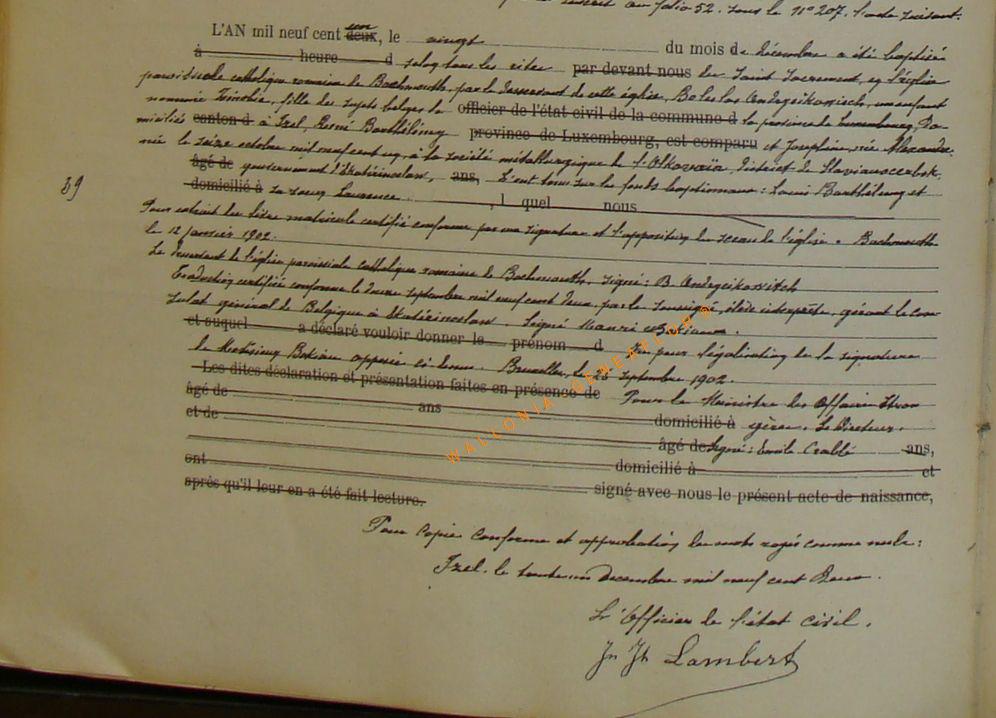 au folio 52. sous le n° 207. l'acte suivant:
L'AN mil neuf cent deux un, le vingt du mois de décembre a été baptisée
à heure d selon tous les rites par devant nous du Saint Sacrement, en l'église
paroissiale catholique romaine de Bachmouth, par le desservant de cette église, Boleslas Andrzeikowisch, un enfant
nommée fille des sujets belges de officier de l'état civil de la commune d la province de Luxembourg, Do-
miciliés canton d à Izel, René Barthélémy province de Luxembourg, est comparu et Joséphine, née Alexandre
née le seize octobre mil neuf cent un, à la société métallurgique de l'Olkovaïa, district de Slavianoserbsk,
39
âgé de gouvernement d'Ekatérinoslaw, ans, L'ont tenu sur les fonts baptismaux: Louis Barthélémy et
domicilié à sa soeur Laurence , l quel nous
Pour extrait du livre matricule certifié conforme par ma signature et l'apposition du sceau de l'église. Bachmouth
le 12 janvier 1902.
Le desservant de l'église paroissiale catholique romaine de Bachmouth, signé: B. Andrzeikowitch
Traduction certifiée conforme le septembre mil neuf cent deux, par le soussigné, élève interprète, gérant le Con-
sulat général de Belgique à Ekatérinoslaw. Signé
et auquel a déclaré vouloir donner le prénom d Vu pour légalisation de la signature
de Monsieur apposée ci-dessus. Bruxelles, le 25 septembre 1902.
Les dites déclaration et présentation faites en présence de Pour le Ministre des Affaires Etran
âgé de ans domicilié à gères. Le Directeur.
et de âgé de Signé: Emile Crabbé ans,
domicilié à et
ont signé avec nous le présent acte de naissance,
après qu'il leur en a été fait lecture.
Pour copie conforme et approbation des mots rayés comme nuls:
Izel, le trente un decembre mil neuf cent Deux.
L'Officier de l'état civil.
Jn Jh Lambert
WALLONIA GENEALOGY